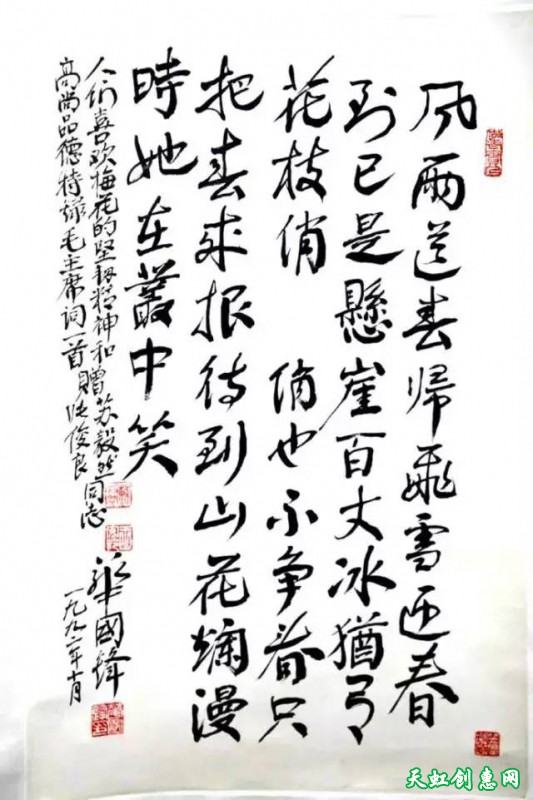 风雨送春归飛雪迎春
到已是懸崖百丈冰猶有
花枝俏 俏也不争春只
把春来报待到山花爛漫
時她在叢中笑
人们喜欢梅花的坚韧精神和贈苏毅然同志
高尚品德特録毛主席词一首贈张俊良
華國鋒
一九九二年十月
天虹创惠网